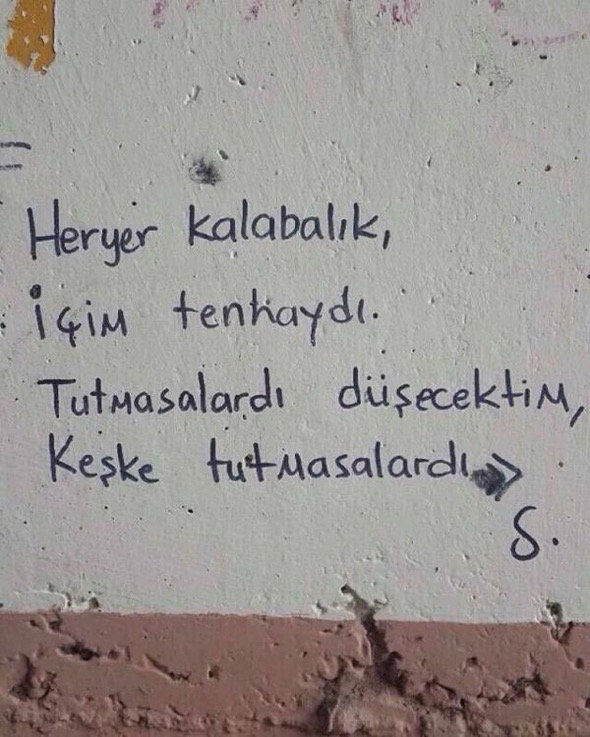 Heryer kalabalık,
İçim tenhaydı.
Tutmasalardı düşecektim,
Keşke tutmasalardı
S.